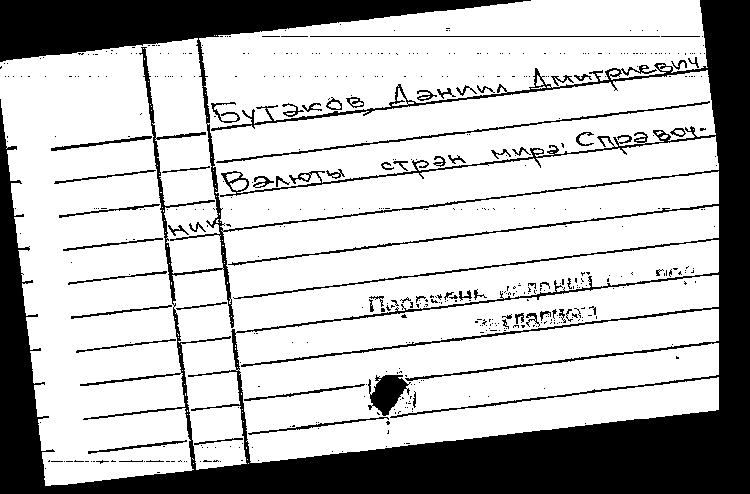 Бутаков, Даниил Дмитриевич.
Валюты стран мира: Справоч-
ник.
Перечень изданий см. под
заглавием